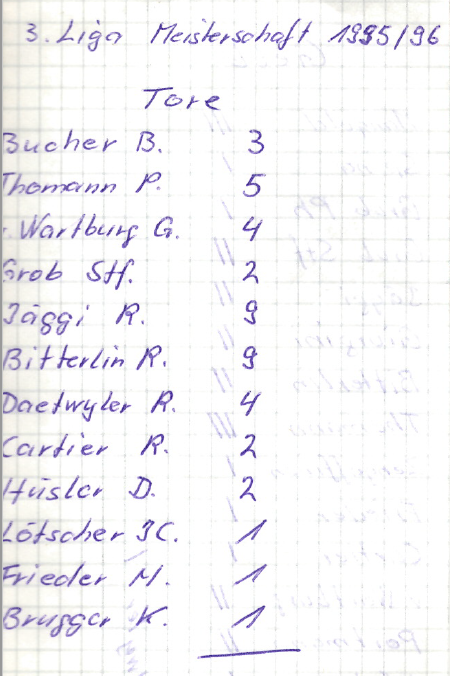 3. Liga Meisterschaft 1995/96
Tore
Bucher B. 3
Thomann P. 5
. Wartburg G. 4
Grob Stf. 2
Jäggi R. 9
Bitterlin R. 9
Daetwyler R. 4
Cartier R. 2
Hüsler D. 2
Lötscher JC. 1
Frieder M. 1
Brugger K. 1